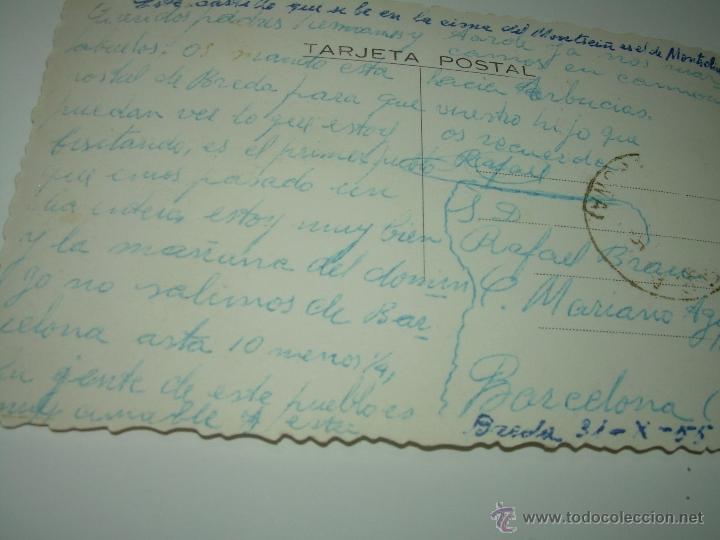 Este castillo que se be en la cima del Montseñ es el de
Queridos padres hermanos y
abuelos: os mando esta
postal de Breda para que
puedan ver lo que estoy
bisitando, es el primer
que emos pasado un
dia entero estoy muy bien
y la mañana del domin
go no salimos de Bar
celona asta 10 menos 1/4,
la gente de este pueblo es
muy amable y esta
TARJETA POSTAL
tarde ya nos
en
hacia Arbucias.
vuestro hijo que
os recuerda
Rafael
S. D.
Rafael
C. Mariano
Barcelona
Breda 31-X-55
www.todocoleccion.net